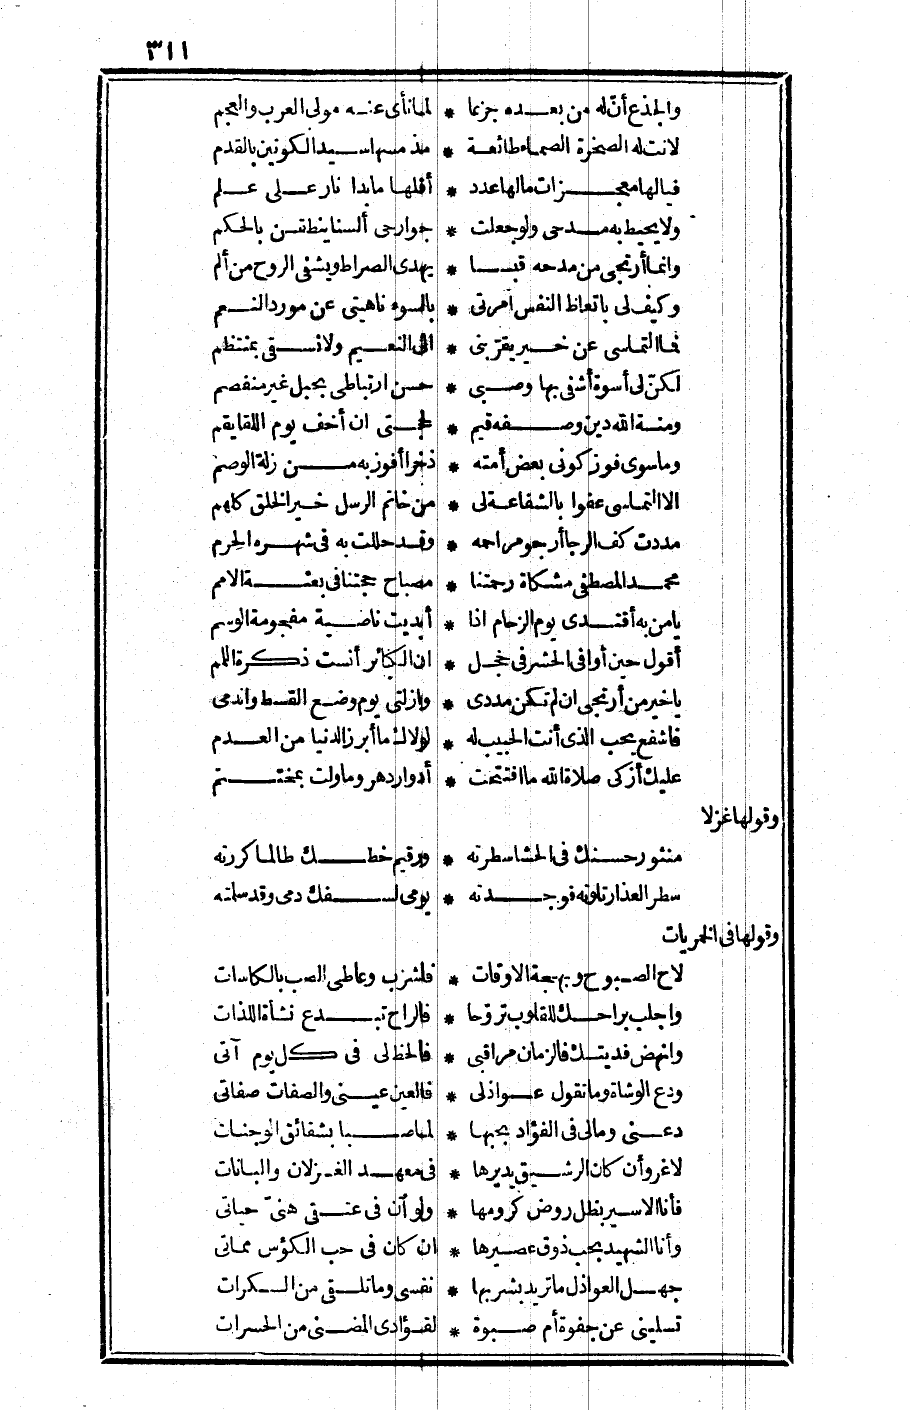 ٣١١
والجذع أنّ له من بعده جزعا * لما نأى عنه مولى العرب والعجم
لانت له الصخرة الصماء طائعة * مذ مسها سيد الكونين بالقدم
فيالها معجزات مالها عدد * أقلها ما بدا نار على علم
ولا يحيط به مدحى ولو جعلت * جوارحى ألسنا ينطقن بالحكم
وانما أرتجى من مدحه قبسا * يهدى الصراط ويشفى الروح من ألم
وكيف لى باتعاظ النفس امرتى * بالسوء ناهيتى عن مورد النعم
فما التماسى عن خير يقرّبنى * الى النعيم ولا نسقى بمنتظم
لكنّ لى أسوة أشفى بها وصبى * حسن ارتباطى بحبل غير منفصم
ومنة الله دين وصفه قيم * لحجتى ان أخف يوم اللقا يقم
وما سوى فوز كونى بعض أمته * ذخرا أفوز به من زلة الوصم
الا التماسى عفوا بالشفاعة لى * من خاتم الرسل خير الخلق كلهم
مددت كف الرجا أرجو مراحمه * وقد حللت به فى شهره الحرم
محمد المصطفى مشكاة رحمتنا * مصباح حجتنا فى بعثة الامم
يا من به أقتدى يوم الزحام اذا * أبديت ناصية مفجومة الوسم
أقول حين أوافى الحشر فى خجل * ان الكبائر أنست ذكرة اللمم
يا خير من أرتجى ان لم تكن مددى * وازلتى يوم وضع القسط واندمى
فاشفع بحب الذى أنت الحبيب له * لولاك ما أبرز الدنيا من العدم
عليك أزكى صلاة الله ما افتتحت * أدوار دهر وما ولت بمختتم
وقولها غزلا
منثور حسنك فى الحشا سطرته * ورقيم خطك طالما كررته
سطر العذار تلوته فوجدته * يومى لسفك دمى وقد سلمته
وقولها فى الخمريات
لاح الصبوح وبهجة الاوقات * فلشرب وعاطى الصب بالكاسات
واجلب براحك للقلوب تروّحا * فالراح تبدع نشأة اللذات
وانهض فديتك فالزمان مراقبى * فالحظ لى فى كل يوم آتى
ودع الوشاة وما تقول عواذلى * فالعين عينى والصفات صفاتى
دعنى ومالى فى الفؤاد بحبها * لما صبا بشقائق الوجنات
لاغرو أن كان الرشيق يديرها * فى معهد الغزلان والبانات
فأنا الاسير بظل روض كرومها * ولو آن فى عنقى هنىّ حياتى
وأنا الشهيد بحب ذوق عصيرها * ان كان فى حب الكؤس مماتى
جهل العواذل ما تريد بشربها * نفسى وما تلقى من السكرات
تسلينى عن جفوة أم صبوة * لفؤادى المضنى من الحسرات